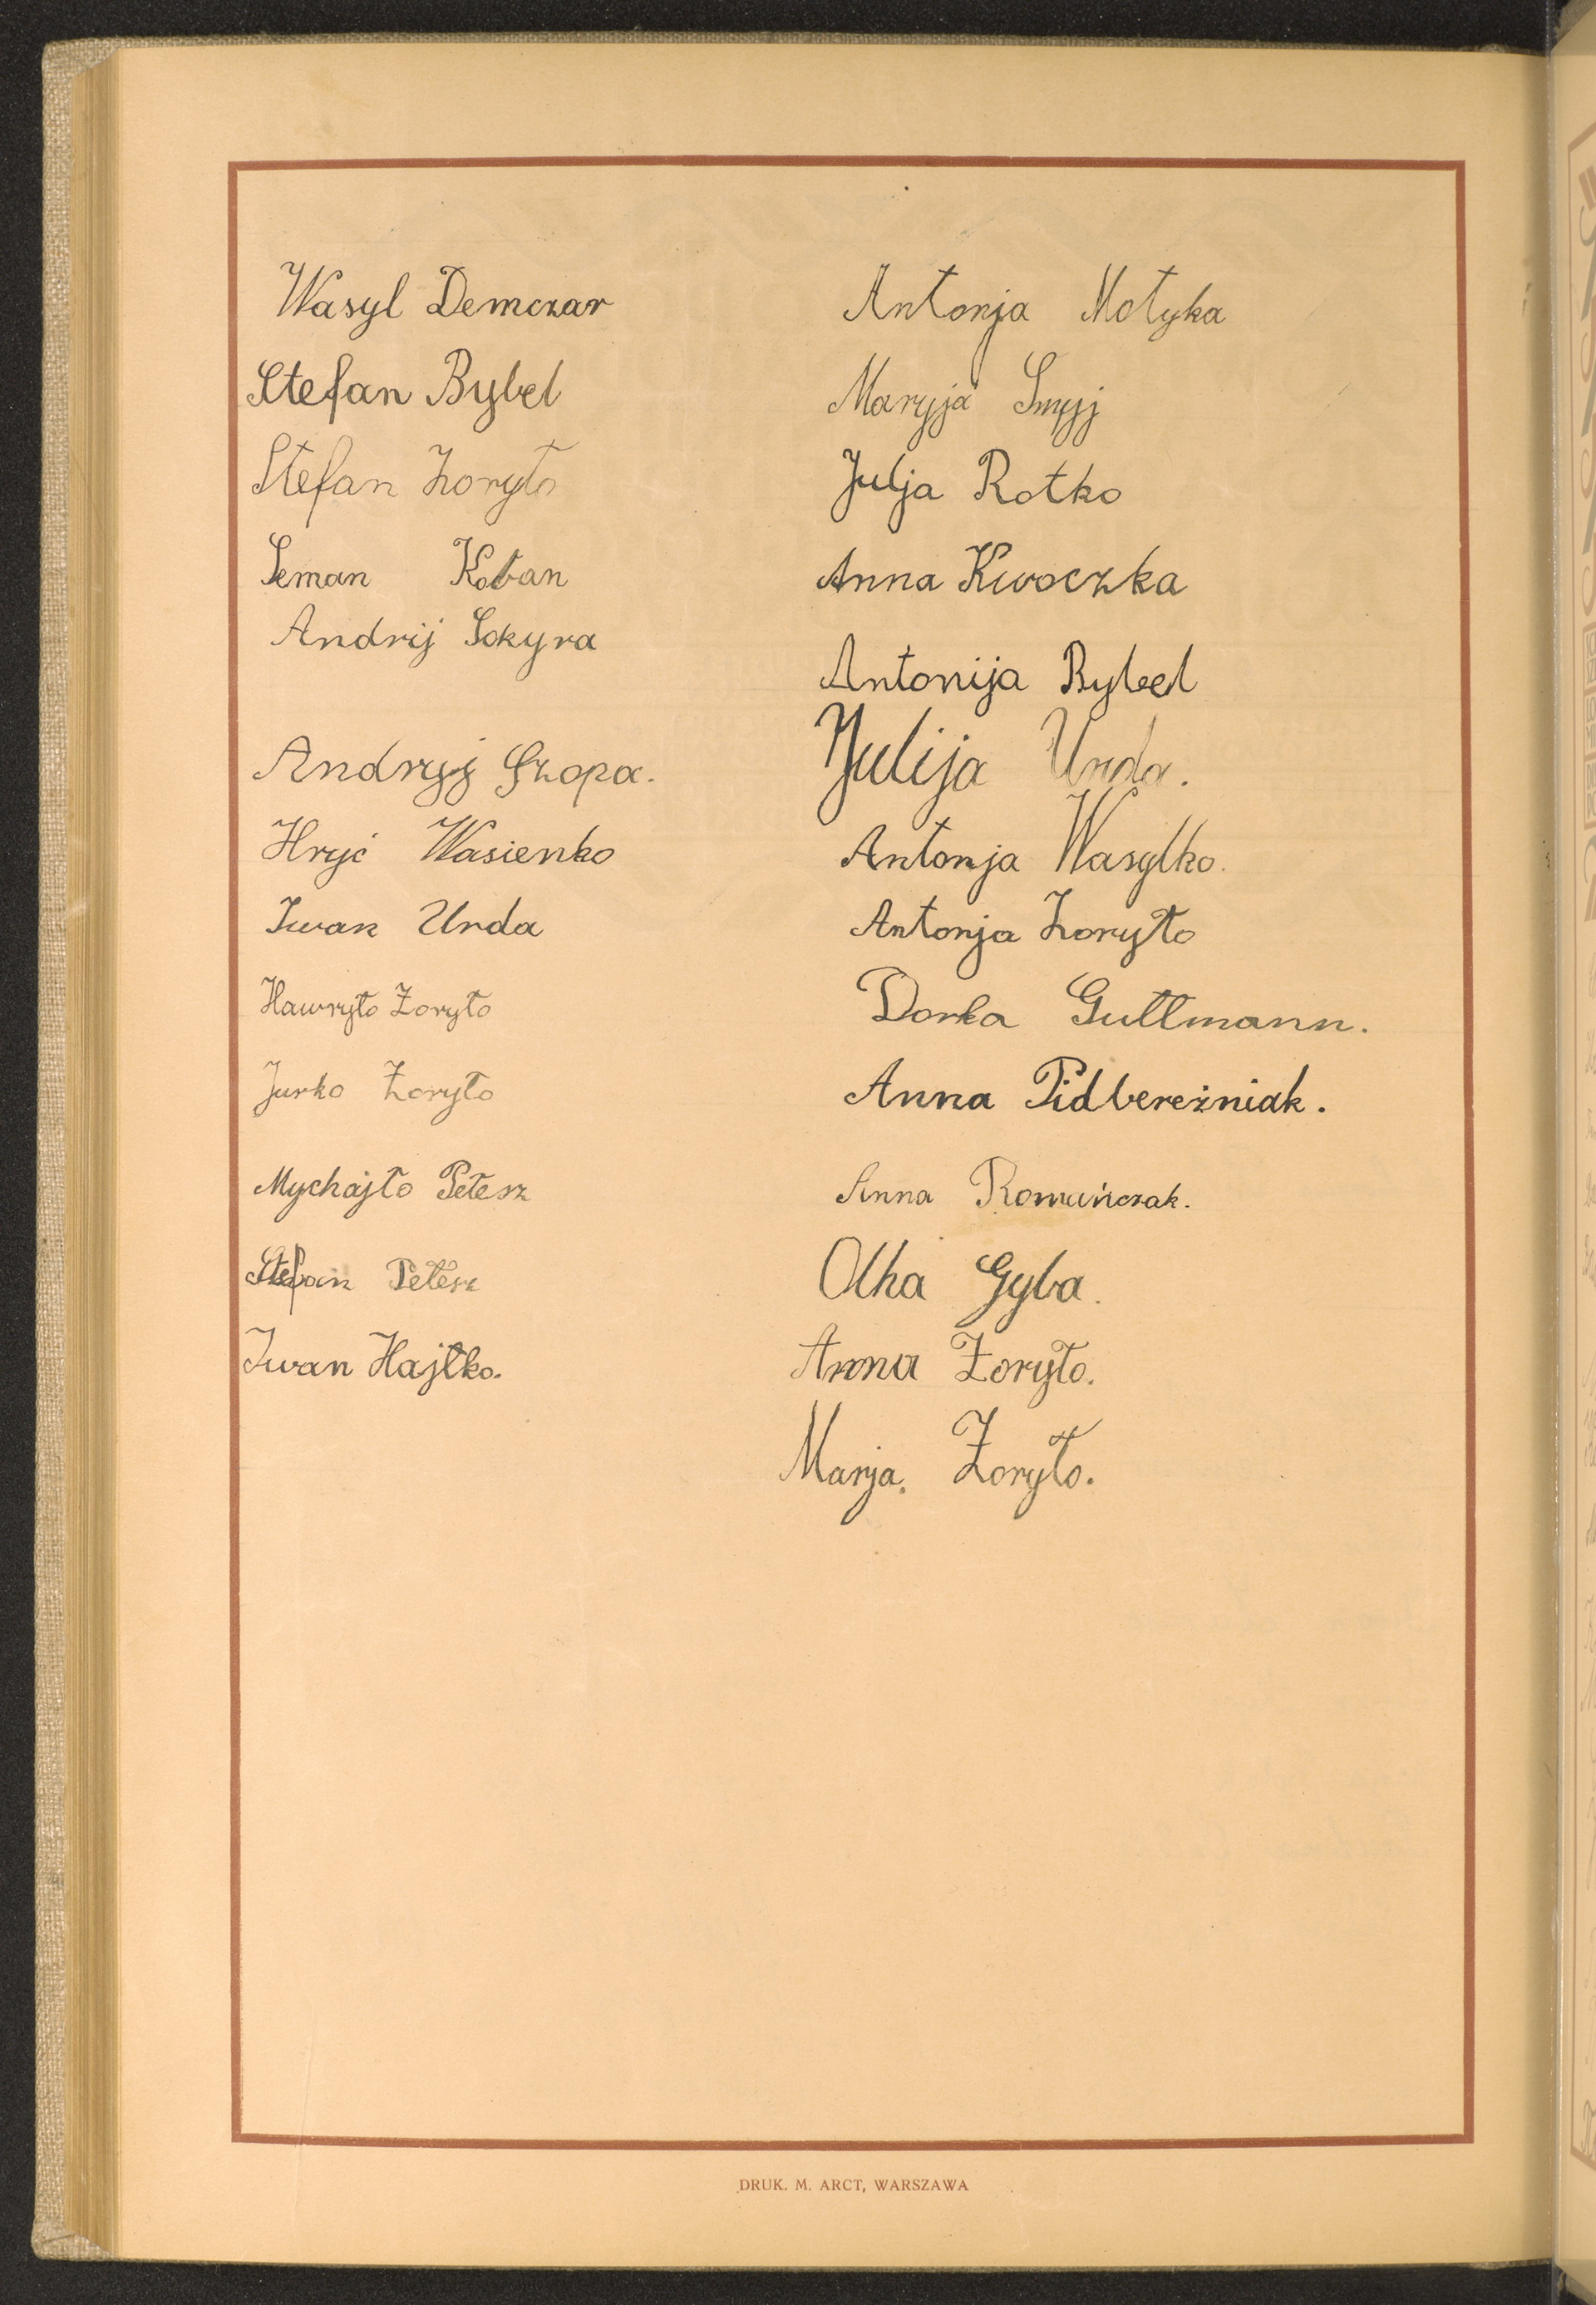 Wasyl Demczar
Stefan Bybel
Stefan Żoryło
Seman Koban
Andrij Sokyra
Andryj Szopa.
Hryć Wasienko
Iwan Urda
Hawryło Żoryło
Jurko Żoryło
Mychajło Petesz
Stefan Petesz
Iwan Hajłko.
Antonja Motyka
Maryja Smyj
Julja Rotko
Anna Kwoczka
Antonija Bybel
Julija Urda.
Antonja Wasylko.
Antonja Żoryło
Dorka Guttmann.
Anna Pidbereżniak.
Anna Romańczak.
Olha Gyba.
Anna Żoryło.
Marja. Żoryło.
DRUK. M. ARCT, WARSZAWA